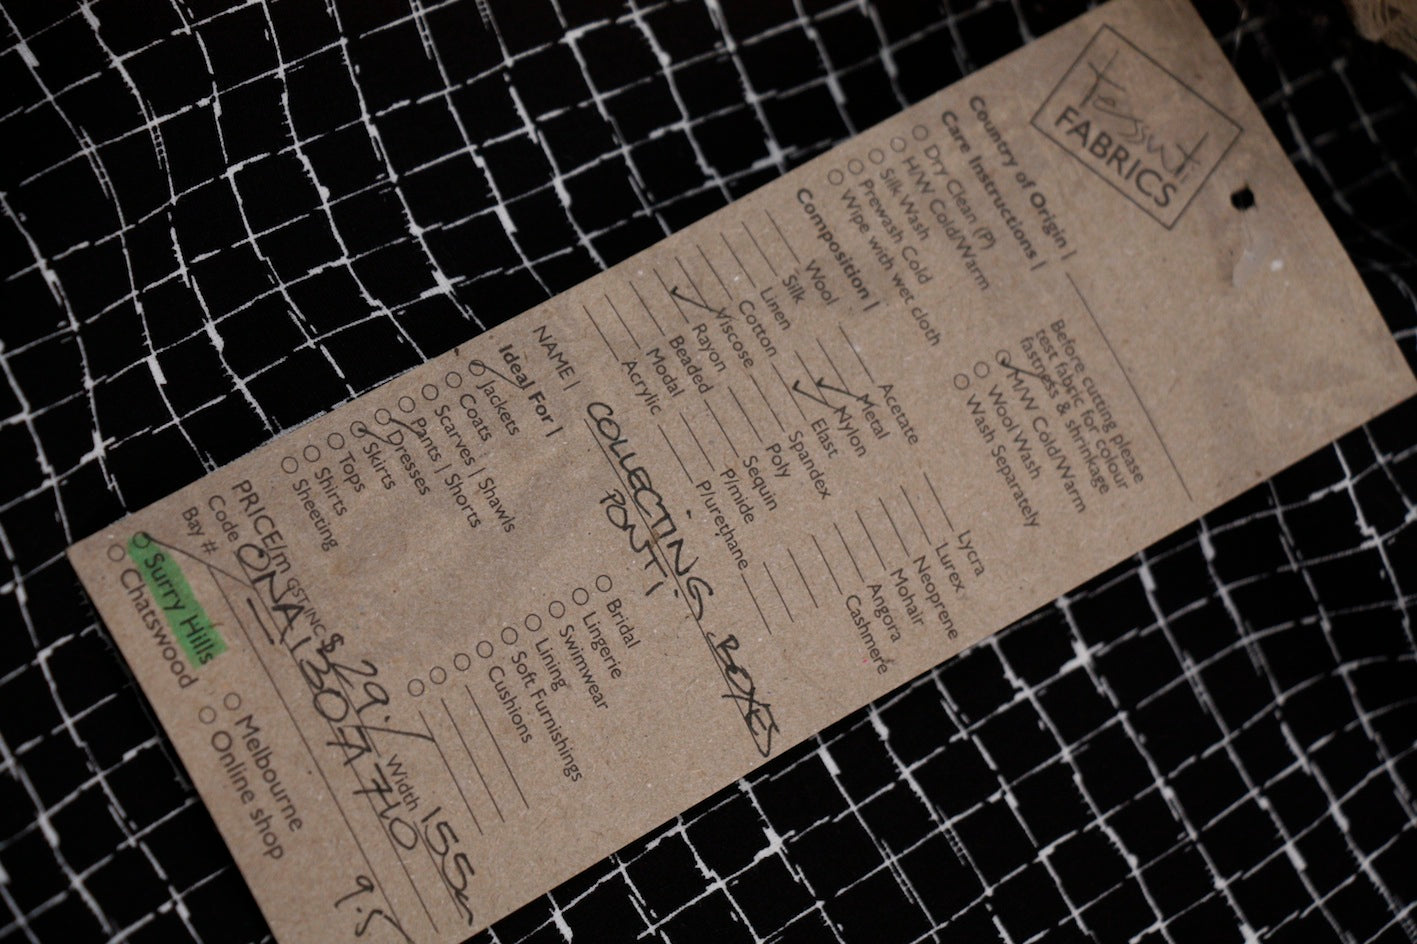 Tessuti
FABRICS
Country of Origin |
Care Instructions |
Dry Clean (P)
H/W Cold/Warm
Silk Wash
Prewash Cold
Wipe with wet cloth
Before cutting please
test fabric for colour
fastness & shrinkage
M/W Cold/Warm
Wool Wash
Wash Separately
Composition |
Wool
Silk
Linen
Cotton
Viscose
Rayon
Beaded
Modal
Acrylic
Acetate
Metal
Nylon
Elast
Spandex
Poly
Sequin
P/mide
P/urethane
Lycra
Lurex
Neoprene
Mohair
Angora
Cashmere
NAME | COLLECTING BOXES
PONTI.
Ideal For |
Jackets
Coats
Scarves | Shawls
Pants | Shorts
Dresses
Skirts
Tops
Shirts
Sheeting
Bridal
Lingerie
Swimwear
Lining
Soft Furnishings
Cushions
PRICE/m GST INC $29./ Width 155
Code ONA1307A 710
Bay # 9.5
Surry Hills
Chatswood
Melbourne
Online shop